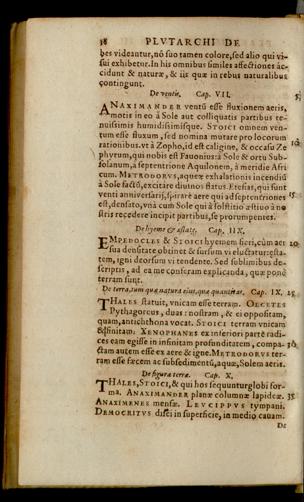 38 PLVTARCHI DE
bes videantur, nō suo tamen colore, sed alio qui vi-
sui exhibetur. In his omnibus similes affectiones ac-
cidunt & naturæ, & iis quæ in rebus naturalibus
contingunt.
De ventis. Cap. VII. 5
ANAXIMANDER ventū esse fluxionem aeris,
motis in eo à Sole aut colliquatis partibus te-
nuissimis humidissimísque. STOICI omnem ven-
tum esse fluxum, sed nomina mutare pro locorum
rationibus. vt à Zopho, id est caligine, & occasu Ze- 10
phyrum, qui nobis est Fauonius: à Sole & ortu Sub-
solanum, à septentrione Aquilonem, à meridie Afri
cum. METRODORVS, aqueæ exhalationis incendiū
à Sole factū, excitare diuinos flatus. Etesias, qui sunt
venti anniversarii, spirare aere qui ad septentriones 15
est, densato, vnà cum Sole qui à solstitio æstiuo à no
stris recedere incipit partibus, se prorumpentes.
De hyeme & æstate. Cap. IIX.
EMPEDOCLES & STOICI hyemem fieri, cùm aer 20
sua densitate obtinet & sursum vi eluctatur: æsta-
tem, igni deorsum vi tendente. Sed sublimibus de-
scriptis, ad ea me conferam explicanda, quæ pone
terram sunt.
De terra, tum quæ natura eius, quæ quantitas. Cap. IX. 25
THALES statuit, vnicam esse terram. OECETES
Pythagoreus, duas: nostram, & ei oppositam,
quam, antichthona vocat. STOICI terram vnicam
&finitam. XENOPHANES ex inferiori parte radi-
ces eam egisse in infinitam profunditatem, compa- 30
ctam autem esse ex aere & igne. METRODORVS ter-
ram esse fæcem ac subsedimentū, aquæ, Solem aeris.
De figura terræ. Cap. X.
THALES, STOICI, & qui hos sequuntur globi for-
ma. ANAXIMANDER planæ columnæ lapideæ. 35
ANAXIMENES mensæ. LEVCIPPVS tympani.
DEMOCRITVS disci in superficie, in medio cauam.
De